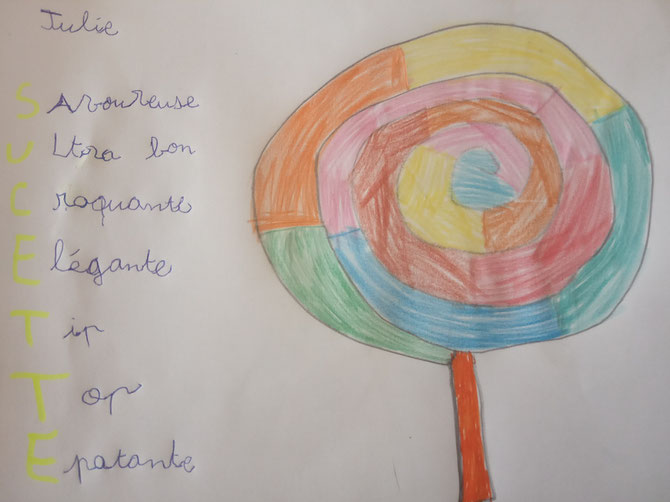 Julie
SAvoureuse
ULtra bon
Craquante
Elégante
Tip
Top
Epatante